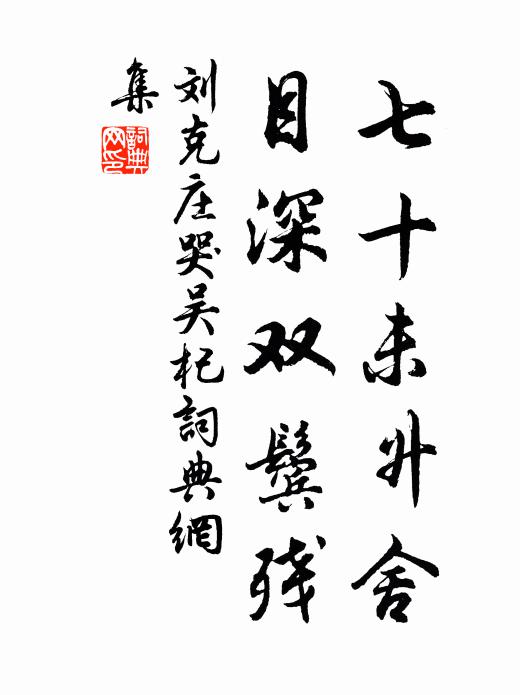 七十未升舍
目深双鬓残
刘克庄哭吴杞詞典網
集
詞典网印